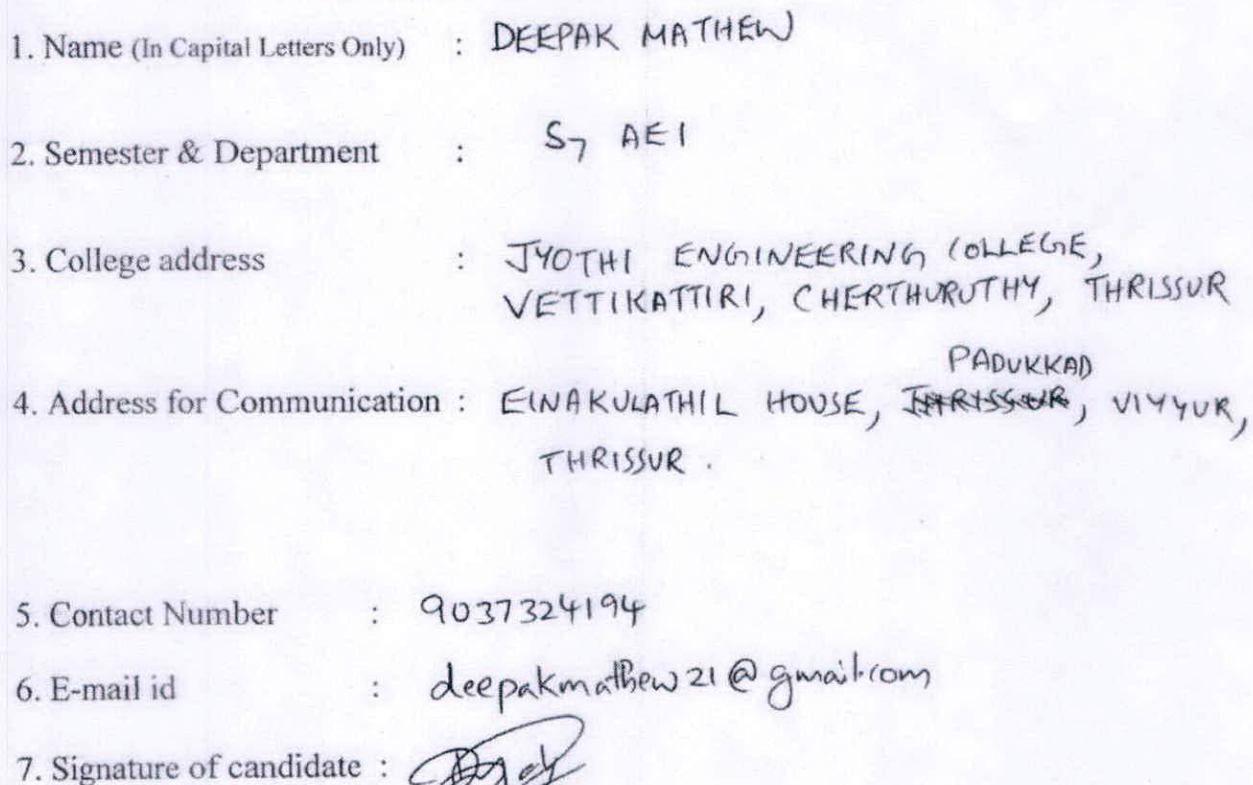 1. Name (In Capital Letters Only) : DEEPAK MATHEW
2. Semester & Department : S7 AEI
3. College address : JYOTHI ENGINEERING COLLEGE,
VETTIKATTIRI, CHERTHURUTHY, THRISSUR
PADUKKAD
4. Address for Communication : EINAKULATHIL HOUSE, THRISSUR, VIYYUR,
THRISSUR.
5. Contact Number : 9037324194
6. E-mail id : deepakmathew21@gmail.com
7. Signature of candidate :